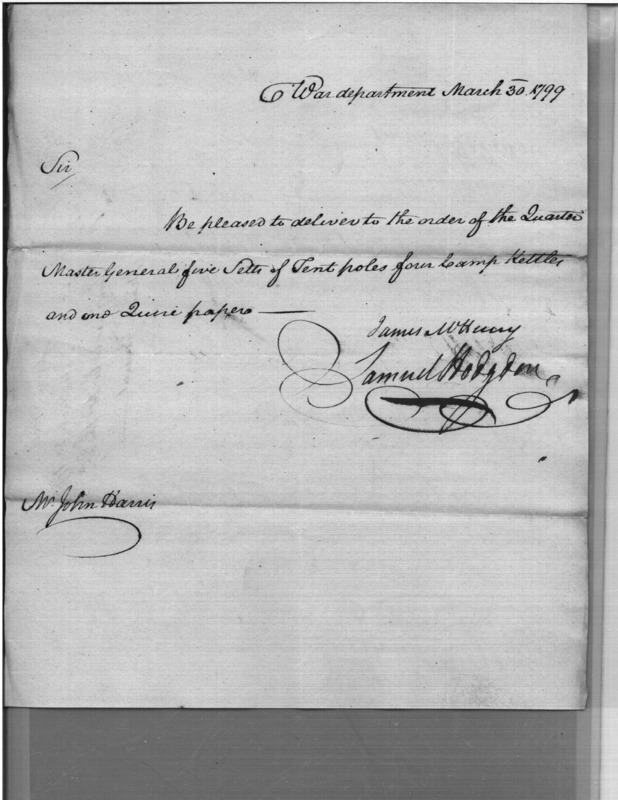 War department March 30. 1799
Sir
Be pleased to deliver to the order of the Quarter
Master General five Setts of Tent poles four Camp Kettles
and one Quire paper —
James McHenry
Samuel Hodgdon
Mr. John Harris